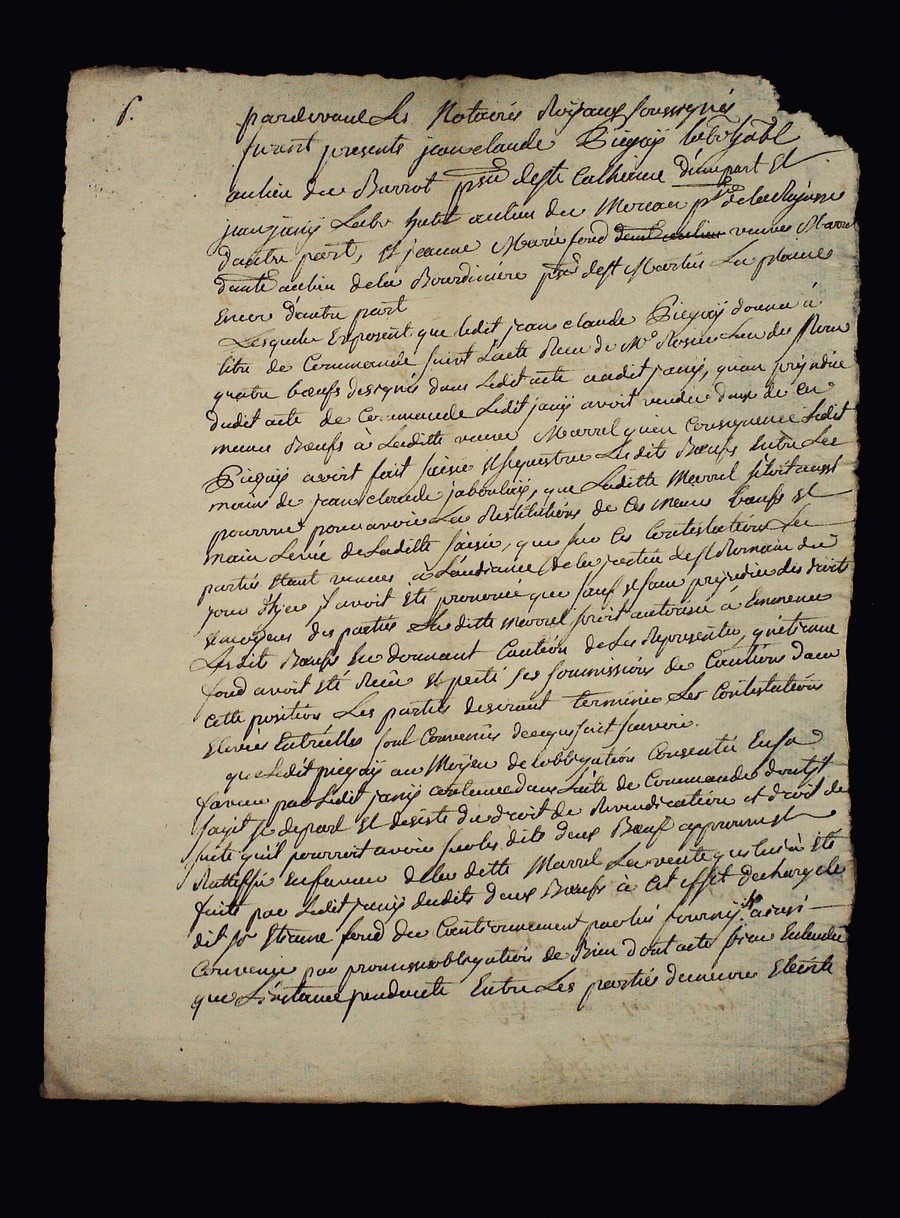 6.
pardevant Les Notaires Royaux soussignés
furent presents jean claude Piegaÿ
au lieu du Burrot psse de Ste Catherine d'une part et
jean janÿ Labr habt au lieu du Moreau psse de la Rajasse
d'autre part, et jeanne Marie fond veuve Marrel
au lieu de la Bourdiniere psse de st Martin La plaine
encor d'autre part
Lesquels Exposent que ledit jean claude Piegaÿ donna à
titre de Commande suivt L'acte Reçu de Me
quatre bœufs designés dans Ledit acte audit janÿ, qu'au préjudice
dudit acte de Commande Ledit janÿ avoit vendu deux de ces
memes Bœufs à Laditte veuve Marrel qu'en Consequence Ledit
Piegaÿ avoit fait saisir et sequestrer Lesdits Bœufs Entre Les
mains de jean claude jaboulaÿ, que Laditte Marrel s'étoit aussi
pourvue pour avoir La Restitution de Ces memes bœufs et
main Levée de Laditte saisie, que sur Ces Contestations Les
parties Etant venues à L'audiance de la justice de st Romain du
jour d'hier il avoit été prononcé que sauf et sans prejudice des droits
et moyens des parties La ditte Marrel seroit autorisée à Emmener
Lesdits Bœufs En donnant Caution de Les Représenter, qu'etienne
fond avoit été Reçu et preté ses soumissions de Caution dans
cette position Les parties desirant terminer Les Contestations
Elevées Entr'elles sont Convenus de ce qui suit savoir.
que Ledit piegaÿ au Moyen de l'obligation Consentie En sa
faveur par Ledit janÿ contenue dans L'acte de Commande dont il
s'agit se depart et desiste du droit de Revendication et droit de
suite qu'il pourroit avoir sur les dits deux Bœufs approuve et
Rattiffie en faveur de la ditte Marrel La vente qui lui a été
faite par Ledit janÿ desdits deux Bœufs à Cet effet decharge le
dit sr Etienne fond du Cautionnement par lui fourni, ainsi
Convenu par promesse obligation de Bien dont acte bien Entendu
que L'instance pendante Entre Les parties demeure Eteinte